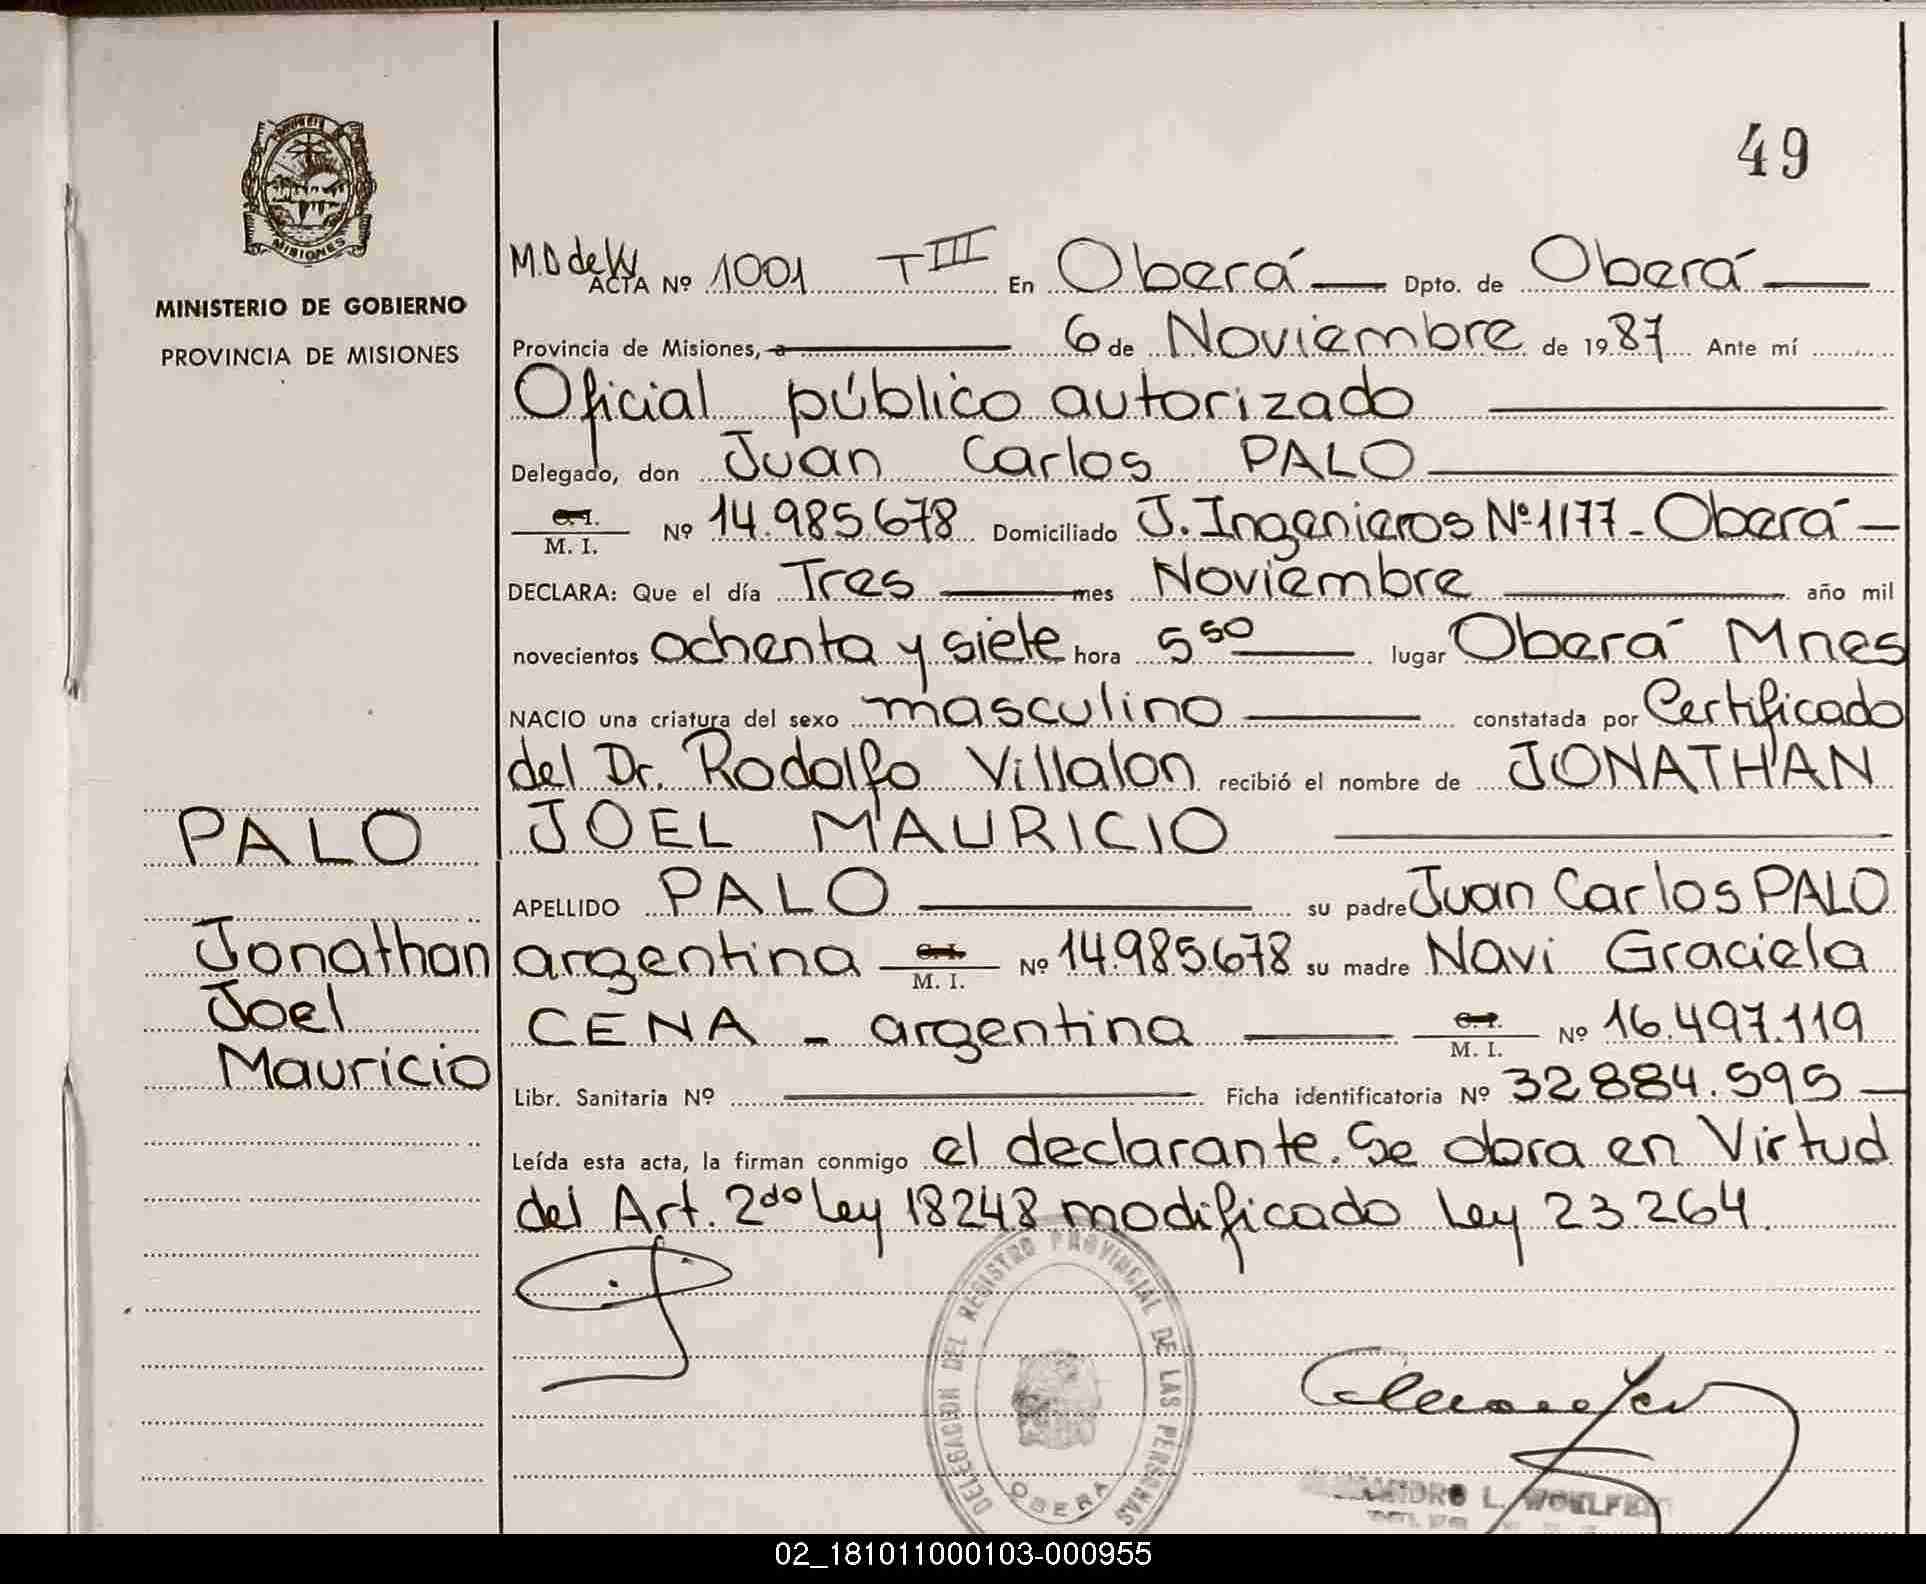 MISIONES
MINISTERIO DE GOBIERNO
PROVINCIA DE MISIONES
49
ACTA Nº 1001 T III En Oberá Dpto. de Oberá
Provincia de Misiones, a 6 de Noviembre de 1987 Ante mí
Oficial público autorizado
Delegado, don Juan Carlos PALO
C. I. / M. I. Nº 14.985.678 Domiciliado J. Ingenieros Nº 1177 - Oberá
DECLARA: Que el día Tres mes Noviembre año mil
novecientos ochenta y siete hora 5 50 lugar Oberá Mnes
NACIO una criatura del sexo masculino constatada por Certificado
del Dr. Rodolfo Villalon recibió el nombre de JONATHAN
JOEL MAURICIO
APELLIDO PALO su padre Juan Carlos PALO
argentina C. I. / M. I. Nº 14.985.678 su madre Navi Graciela
CENA - argentina C. I. / M. I. Nº 16.497.119
Libr. Sanitaria Nº Ficha identificatoria Nº 32884.595
Leída esta acta, la firman conmigo el declarante. Se obra en Virtud
del Art. 2do Ley 18248 modificado Ley 23.264.
PALO
Jonathan
Joel
Mauricio
DELEGACION DEL REGISTRO PROVINCIAL DE LAS PERSONAS
OBERA
L. WOHLFE
02_181011000103-000955